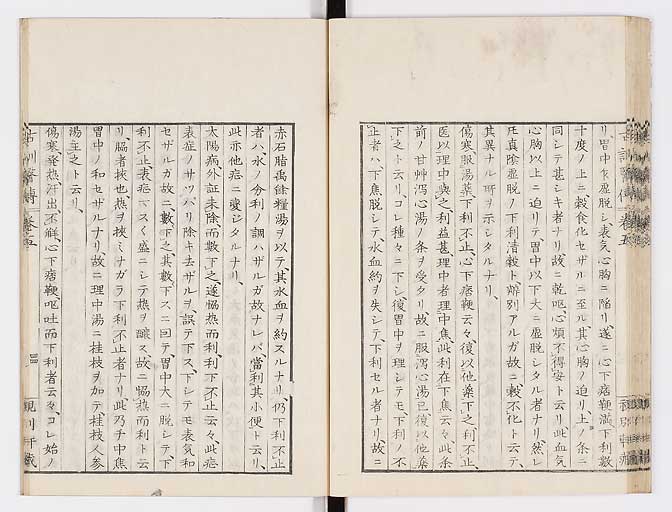 リ、胃中乍虚脱シ、表気心胸ニ陥リ、遂ニ心下痞鞕満、下利数
十度ノ上ニ、穀食化セザルニ至ル、其心胸ノ迫リ、上ノ条ニ
同シテ甚シキ者ナリ、故ニ乾呕、心煩不得安ト云リ、此血気
心胸以上ニ迫リテ、胃中以下大ニ虚脱シタル者ナリ、然レ
圧真陰虚脱ノ下利清穀ト、辨別アルガ故ニ、穀不化ト云テ、
其異ナル所ヲ示シタルナリ、
傷寒服湯薬、下利不止、心下痞鞕云々、復以他薬下之、利不止、
医以理中与之、利益甚、理中者理中焦、此利在下焦云々、此条
前ノ甘艸瀉心湯ノ条ヲ受タリ、故ニ服瀉心湯已、復以他薬
下之ト云リ、コレ種々ニ下シ、復胃中ヲ理シテモ、下利ノ不
止者ハ、下焦脱シテ、水血約ヲ失シテ、下利セル者ナリ、故ニ
赤石脂禹餘糧湯ヲ以テ、其水血ヲ約スルナリ、仍下利不止
者ハ、水ノ分利ノ調ハザルガ故ナレバ、當利其小便ト云リ、
此亦他症ニ変ジタルナリ、
太陽病、外証未除、而数下之、遂恊熱而利、利下不止云々、此症
表症ノサツパリ除キ去ザルヲ、誤テ下ス、下シテモ表気和
セザルガ故ニ、数下之、其数下スニ因テ、胃中大ニ脱シテ、下
利不止、表症マスく盛ニシテ、熱ヲ醸ス、故ニ恊熱而利ト云
リ、恊者挾也、熱ヲ挾ミナガラ下利不止者ナリ、此乃チ中焦
胃中ノ和セザルナリ、故ニ理中湯ニ桂枝ヲ加テ、桂枝人参
湯主之ト云リ、
傷寒発熱、汗出不解、心下痞鞕、呕吐而下利者云々、コレ始ノ